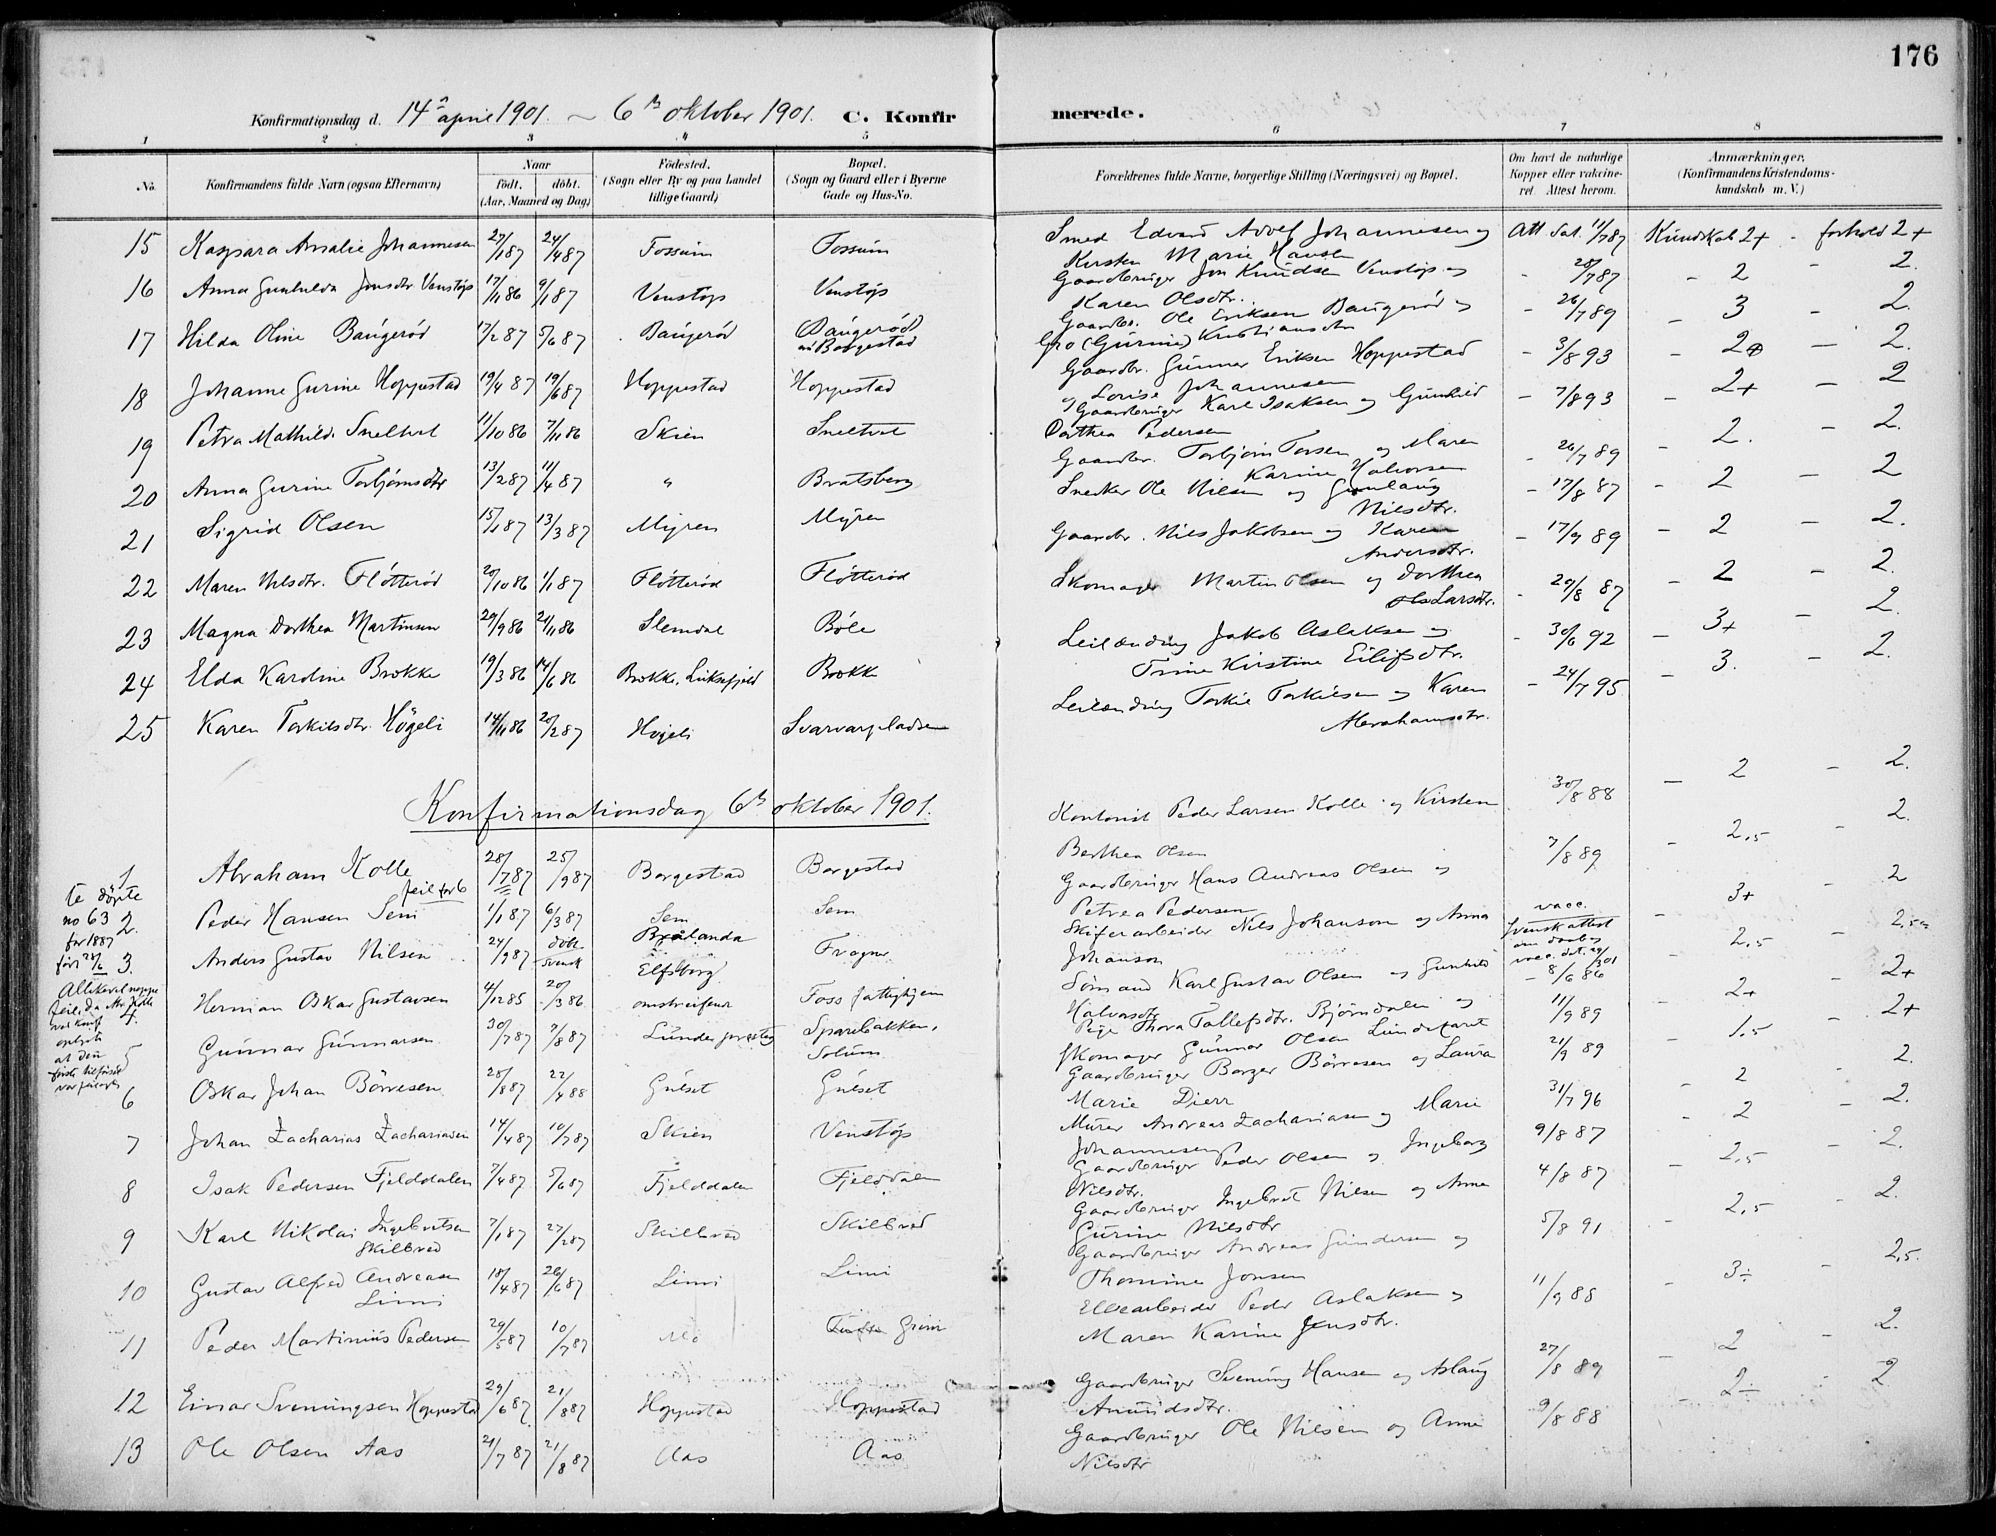 176
Konfirmationsdag d. 14 april 1901. ~ 6 oktober 1901. C. Konfir merede.
1 2 3 4 5 6 7 8
No. Konfirmandens fulde Navn (ogsaa Efternavn) Naar født. døbt. (Aar, Maaned og Dag) Fødested. (Sogn eller By og paa Landet tillige Gaard) Bopæl. (Sogn og Gaard eller i Byerne Gade og Hus-No. Forældrenes fulde Navne, borgerlige Stilling (Næringsvei) og Bopæl. Om havt de naturlige Kopper eller vakcineret. Attest herom. Anmærkninger. (Konfirmandens Kristendomskundskab m. V.)
15 Kaspara Amalie Johannesen 27/1 87 24/4 87 Fossum Fossum Smed Edvard Adolf Johannesen og Kirsten Marie Hansen Att dat. 11/7 87 Kundskab 2+ - forhold 2+
16 Anna Gunhilda Jonsdtr Venstøp 17/11 86 9/1 87 Venstøp Venstøp Gaardbruger Jon Knudsen Venstøp og Karen Olsdtr. - 28/7 87 - 2 - 2.
17 Hilda Oline Baugerød 17/2 87 5/6 87 Baugerød Baugerød Borgestad Gaardbr. Ole Eriksen Baugerød og Gro (Gurine) Kristiansdtr - 26/7 89 - 3 2.
18 Johanne Gurine Hoppestad 19/4 87 19/6 87 Hoppestad Hoppestad Gaardbr. Gunnar Eriksen Hoppestad og Lovise Johannesen - 3/8 93 - 2+ - 2.
19 Petra Mathilde Sneltvet 11/10 86 7/11 86 Skien Sneltvet Gaardbruger Karl Isaksen og Gunhild Dorthea Pedersen - 7/8 93 - 2+ - 2
20 Anna Gurine Torbjørnsdtr 13/2 87 11/4 87 " Bratsberg Gaardbr. Torbjørn Torsen og Maren Karine Halvorsen - 26/7 89 - 2. - 2.
21 Sigrid Olsen 15/1 87 13/3 87 Myren Myren Snedker Ole Nilsen og Gunlaug Nilsdtr. - 17/8 87 - 2 - 2
22 Maren Nilsdtr. Fløtterød 20/10 86 1/1 87 Fløtterød Fløtterød Gaardbr. Nils Jakobsen og Karen Andersdtr. - 17/9 89 - 2 - 2.
23 Magna Dorthea Martinsen 29/9 86 21/11 86 Slemdal Bøle Skomager Martin Olsen og Dorthea Larsdtr. - 29/8 87 - 2 - 2.
24 Elda Karoline Brokke 19/3 86 14/6 86 Brokke, Luksefjeld Brokke Leilænding Jakob Aslaksen og Trine Kirstine Eilifsdtr. - 30/6 92 - 3+ - 2.
25 Karen Torkilsdtr. Høgeli 14/11 86 20/2 87 Høgeli Svarvarpladsen Leilænding Torkil Torkilsen og Karen Abrahamsdtr. - 24/7 95 - 3. - 2.
Konfirmationsdag 6 oktober 1901.
1 Abraham Kolle feil for 6 28/7 87 25/9 87 Borgestad Borgestad Kontorist Peder Larsen Kolle og Kirsten Berthea Olsen 30/8 88 - 2 - 2.
te døpte no 63 for 1887
2. Peder Hansen Sem 1/1 87 6/3 87 Sem Sem Gaardbruger Hans Andreas Olsen og Petrea Pedersen 7/8 89 2,5 - 2.
3. Anders Gustav Nilsen 24/9 87 Svensk Elfsborg Frogner Skiferarbeider Nils Johanson og Anna Johanson vacc. Svensk attest om daab og vacc. 3+ - 2
4. Herman Oskar Gustavsen 4/12 85 20/3 86 omstreifende Foss fattighjem Sømand Karl Gustav Olsen og Gunhild Halvorsdtr - 8/6 86 2,5
5 Gunnar Gunnarsen 30/7 87 7/8 87 Lunde prestegj Sparebakken, Solum Pige Thora Tollefsdtr. Bjørndalen og Skomager Gunnar Olsen 11/9 89 2+ 2+
6 Oskar Johan Børresen 28/8 87 22/4 88 Gulset Gulset Gaardbruger Borger Børresen og Laura Marie Dierr 21/9 89 - 1,5 - 2+
7 Johan Zacharias Zachariasen 14/4 87 10/7 87 Skien Venstøp Murer Andreas Zachariasen og Marie Johannesen 31/7 96 - 2 2.
8 Isak Pedersen Fjelddalen 7/4 87 5/6 87 Fjelddalen Fjelddalen Gaardbruger Peder Olsen og Ingeborg Nilsdtr. 9/8 87 - 2 - 2.
9 Karl Nikolai Ingebretsen Skilbred 7/1 87 27/2 87 Skilbred Skilbred Gaardbruger Ingebret Nilsen og Anne Gurine Nilsdtr 4/8 87 - 2,5 - 2.
10 Gustav Alfred Andreasen Limi 18/4 87 26/6 87 Limi Limi Gaardbruger Andreas Gundersen og Thomine Jonsen 5/8 91 - 2,5 - 2.
11 Peder Martinius Pedersen 29/5 87 10/7 87 Mo Grini Elvearbeider Peder Aslaksen og Maren Karine Jensdtr. 11/9 88 - 3÷ 2,5.
12 Einar Sveningsen Hoppestad 29/6 87 21/8 87 Hoppestad Hoppestad Gaardbruger Svening Hansen og Aslaug Amundsdtr. 27/8 89 - 2 - 2.
13 Ole Olsen Aas 21/7 87 21/8 87 Aas Aas Gaardbruger Ole Nilsen og Anne Nilsdtr 9/8 88 - 2÷ - 2